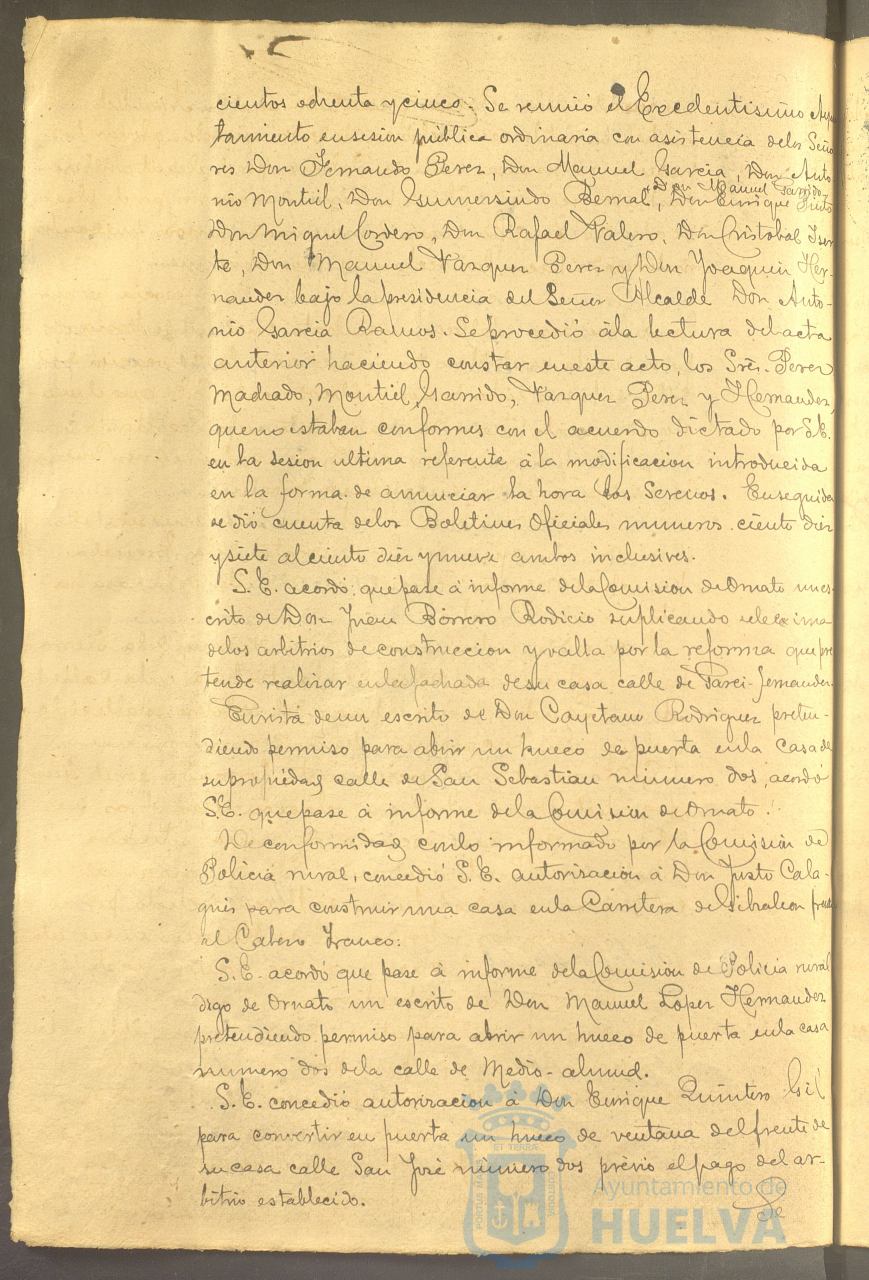 cientos ochenta y cinco. Se reunió el Excelentisimo Ayun
tamiento en sesion pública ordinaria con asistencia de los Seño
res Don Fernando Perez, Don Manuel Garcia, Don Anto
nio Montiel, Don Gumersindo Bernal, Don Manuel Garrido, Don Enrique
Don Miguel Cordero, Don Rafael Valero, Don Cristobal Iser
te, Don Manuel Vazquez Perez y Don Joaquin Her-
nandez bajo la presidencia del Señor Alcalde Don Anto-
nio Garcia Ramos. Se procedió á la lectura del acta
anterior haciendo constar en este acto, los Sres. Perez
Machado, Montiel, Garrido, Vazquez Perez y Hernandez,
que no estaban conformes con el acuerdo dictado por S.E.
en la sesion ultima referente á la modificacion introducida
en la forma de anunciar la hora los Serenos. Enseguida
se dió cuenta de los Boletines Oficiales numeros ciento diez
y siete al ciento diez y nueve ambos inclusives.
S.E. acordó que pase á informe de la Comision de Ornato un es-
crito de Don Juan Borrero Rodicio suplicando se le exima
de los arbitrios de construccion y valla por la reforma que pre
tende realizar en la fachada de su casa calle de Garci-Fernandez.
En vista de un escrito de Don Cayetano Rodriguez preten-
diendo permiso para abrir un hueco de puerta en la casa de
su propiedad calle de San Sebastian número dos, acordó
S.E. que pase á informe de la Comision de Ornato.
De conformidad con lo informado por la Comisión de
Policia rural, concedió S.E. autorizacion á Don Justo Cala-
para construir una casa en la Carretera de Gibraleon frente
al Cabezo Franco:
S.E. acordó que pase á informe de la Comision de Policia rural
digo de Ornato un escrito de Don Manuel Lopez Hernandez
pretendiendo permiso para abrir un hueco de puerta en la casa
numero dos de la calle de Medio-almud.
S.E. concedió autorizacion á Don Enrique Quintero Gil
para convertir en puerta un hueco de ventana del frente de
su casa calle San José número dos prévio el pago del ar-
bitrio establecido.
Ayuntamiento de
HUELVA